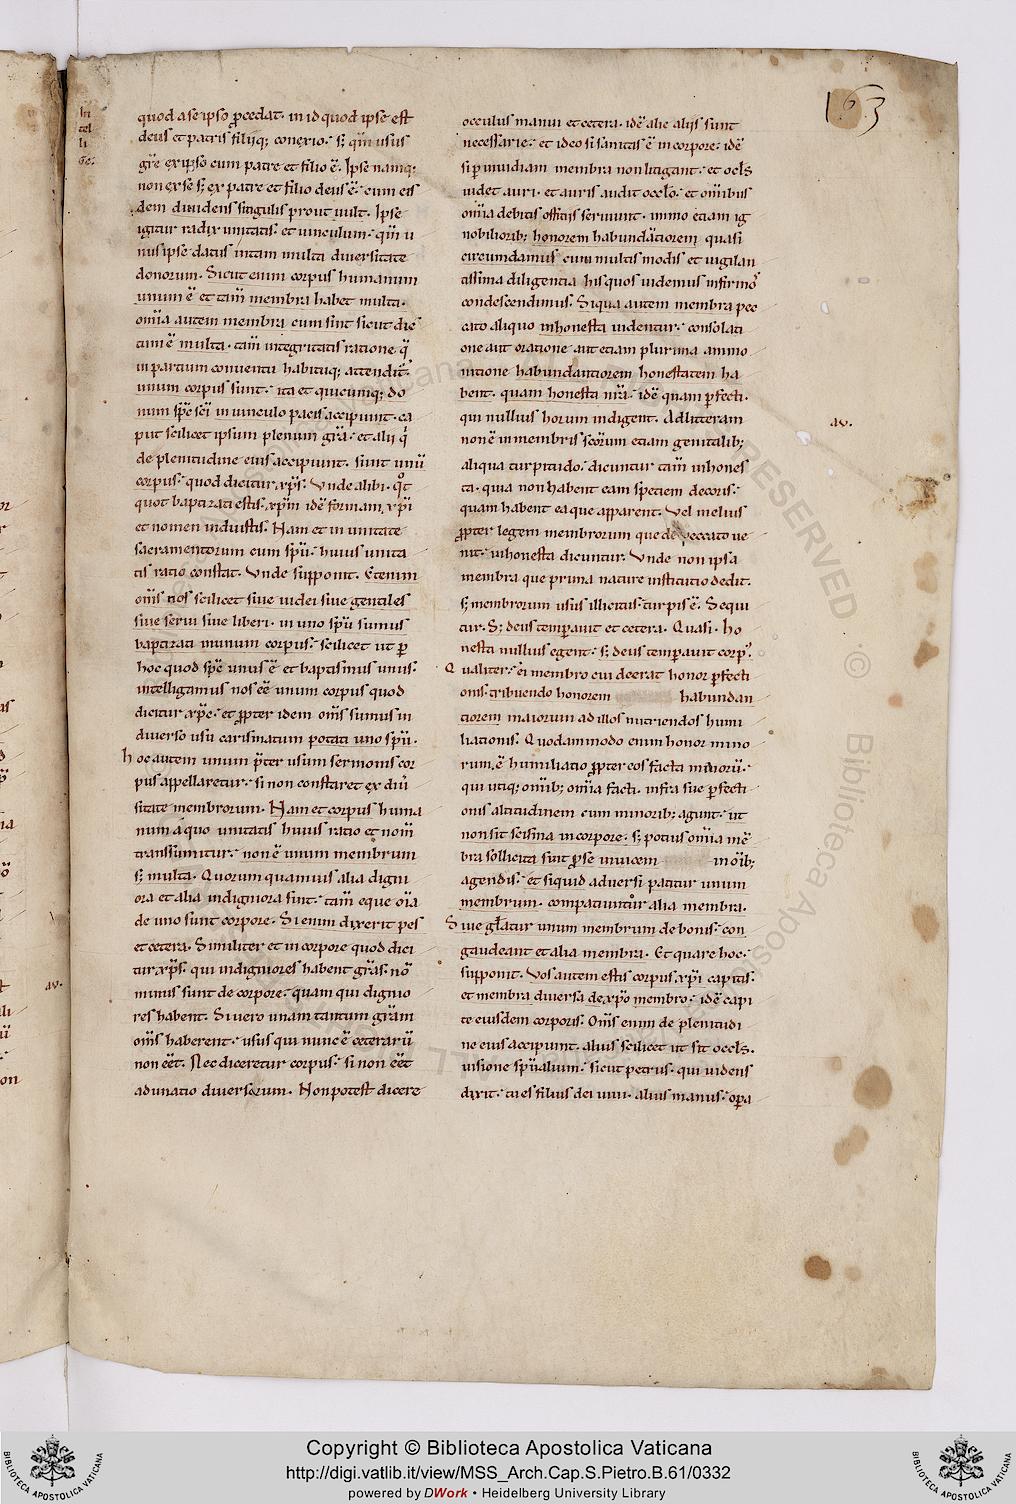 163
In
tel
li
ge:
quod a se ipso ꝓcedat. in id quod ipse est
deus et patris filiiq; conexio. s; qm̄ usus
gr̄e ex ipso cum patre et filio ē. Ipse namq;
non ex se s; ex patre et filio deus ē. cum eis
dem diuidens singulis prout uult. Ipse
igitur radix unitatis. et uinculum. qm̄ u
nus ipse datus in tam multa diuersitate
donorum. Sicut enim corpus humanum
unum ē et tam̄ membra habet multa.
om̄ia autem membra cum sint sicut dic
tum ē multa. tam̄ integritatis ratione q̄
in partium conuentu habituq; attendit̄.
unum corpus sunt. ita et quicumq; do
num sp̄c sc̄i in uinculo pacis accipiunt. ca
put scilicet ipsum plenum gr̄a. et alij q̄
de plenitudine eius accipiunt. sunt unū
corpus. quod dicitur xp̄s. Vnde alibi. qo̅t
quot baptizati estis. xp̄m idē formam xp̄i
et nomen induistis. Nam et in unitate
sacramentorum cum sp̄u. huius unita
tis ratio constat. Vnde supponit. Etenim
om̄s nos scilicet siue iudei siue gentiles
siue serui siue liberi. in uno sp̄u sumus
baptizati in unum corpus. scilicet ut p
hoc quod sp̄c unus ē et baptismus unus.
intelligamus nos eē unum corpus quod
dicitur xp̄c. et ꝓpter idem om̄s sumus in
diuerso usu carismatum potati uno sp̄u.
hoc autem unum p̄ter usum sermonis cor
pus appellaretur. si non constaret ex diū
sitate membrorum. Nam et corpus huma
num a quo unitatis huius ratio et nom̄
transsumitur. non ē unum membrum
s; multa. Quorum quamuis alia digni
ora et alia indigniora sint. tam̄ eque oīa
de uno sunt corpore. Si enim dixerit pes
et cetera. Similiter et in corpore quod dici
tur xp̄s. qui indigniores habent gr̄as. nō
minus sunt de corpore. quam qui dignio
res habent. Si uero unam tantum gr̄am
om̄s haberent. usus qui nunc ē ceterarū
non eēt. Nec diceretur corpus. si non eēt
adunatio diuersorum. Non potest dicere
occulus manui et cetera. idē alie aliis sunt
necessarie. et ideo si sanitas ē in corpore. idē
si p inuidiam membra non litigant. et ocls
uidet auri. et auris audit occlo. et om̄ibus
om̄ia debitis officijs seruiunt. immo etiam ig
nobiliorib; honorem habundātiorem quasi
circumdamus cum multis modis et uigilan
tissima diligentia his quos uidemus infirmos
condescendimus. Si qua autem membra pec
cato aliquo inhonesta uidentur. consolati
one aut oratione aut etiam plurima ammo
nitione habundantiorem honestatem ha
bent. quam honesta nr̄a. idē quam pfecti.
qui nullius horum indigent. Ad litteram
non ē in membris scōrum etiam genitalib;
aliqua turpitudo. dicuntur tam̄ inhones
ta. quia non habent eam speciem decoris.
quam habent ea que apparent. Vel melius
ꝓpter legem membrorum que de peccato ue
nit. inhonesta dicuntur. Vnde non ipsa
membra que prima nature institutio dedit.
s; membrorum usus illicitus. turpis ē. Sequi
tur. S; deus temperauit et cetera. Quasi. ho
nesta nullius egent. s; deus temperauit corp̉.
Qualiter. ei membro cui deerat honor pfecti
onis. tribuendo honorem habundan
tiorem maiorum ad illos nutriendos humi
liationis. Quodammodo enim honor mino
rum ē humiliatio ꝓpter eos facta maiorū.
qui utiq; om̄ib; om̄ia facti. infra sue pfecti
onis altitudinem cum minorib; agunt. ut
non sit scisma in corpore. s; potius om̄ia mē
bra sollicita sint p se inuicem in ōib;
agendis. et siquid aduersi patitur unum
membrum. compatiuntur alia membra.
Siue glatur unum membrum de bonis. con
gaudeant et alia membra. Et quare hoc.
supponit. Vos autem estis corpus xp̄i capitis.
et membra diuersa de xp̄o membro. idē capi
te eiusdem corporis. Om̄s enim de plenitudi
ne eius accipiunt. alius scilicet ut sit ocls.
uisione sp̄ualium. sicut petrus. qui uidens
dixit. tu es filius dei uiui. alius manus. opa
av.
av.
Copyright © Biblioteca Apostolica Vaticana
http://digi.vatlib.it/view/MSS_Arch.Cap.S.Pietro.B.61/0332
powered by DWork • Heidelberg University Library